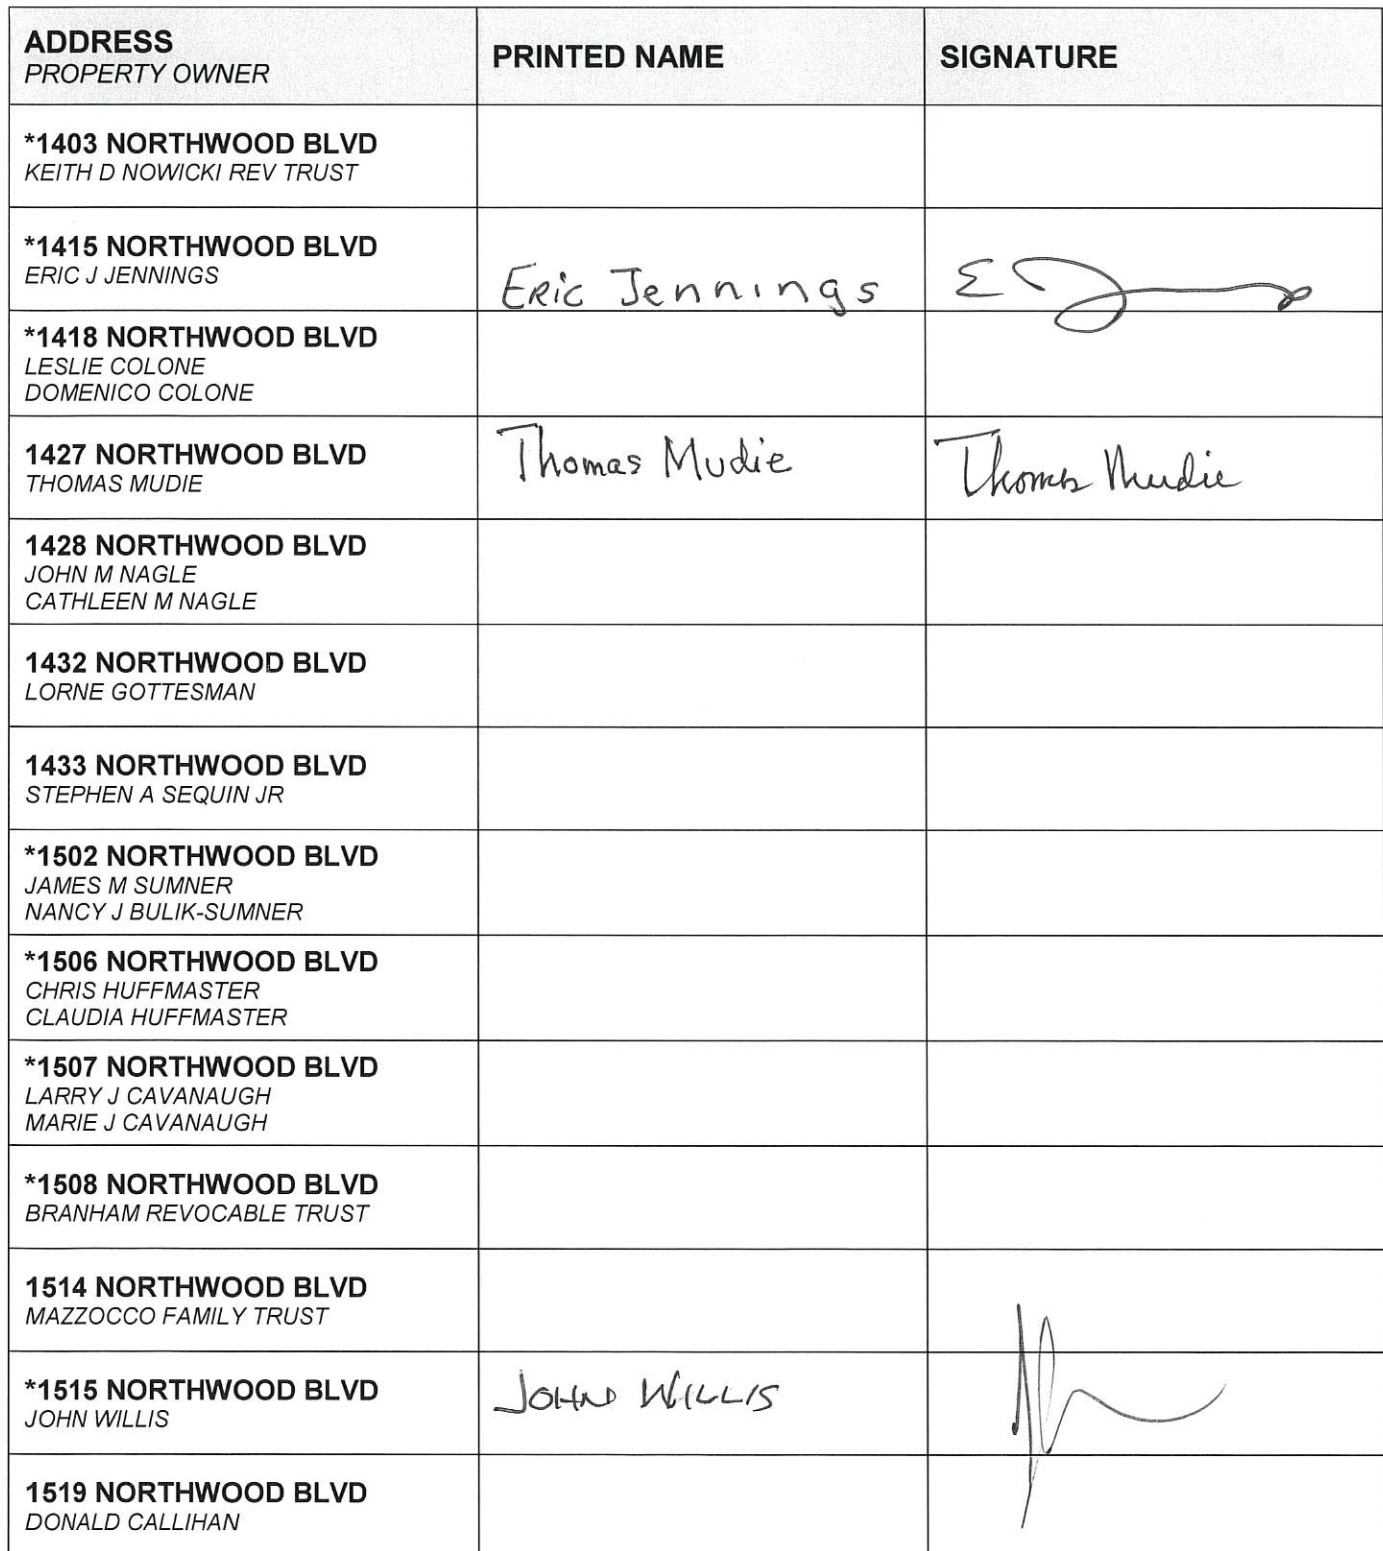 ADDRESS
PROPERTY OWNER
PRINTED NAME
SIGNATURE
*1403 NORTHWOOD BLVD
KEITH D NOWICKI REV TRUST
*1415 NORTHWOOD BLVD
ERIC J JENNINGS
ERic Jennings
E
*1418 NORTHWOOD BLVD
LESLIE COLONE
DOMENICO COLONE
1427 NORTHWOOD BLVD
THOMAS MUDIE
Thomas Mudie
Thomas Mudie
1428 NORTHWOOD BLVD
JOHN M NAGLE
CATHLEEN M NAGLE
1432 NORTHWOOD BLVD
LORNE GOTTESMAN
1433 NORTHWOOD BLVD
STEPHEN A SEQUIN JR
*1502 NORTHWOOD BLVD
JAMES M SUMNER
NANCY J BULIK-SUMNER
*1506 NORTHWOOD BLVD
CHRIS HUFFMASTER
CLAUDIA HUFFMASTER
*1507 NORTHWOOD BLVD
LARRY J CAVANAUGH
MARIE J CAVANAUGH
*1508 NORTHWOOD BLVD
BRANHAM REVOCABLE TRUST
1514 NORTHWOOD BLVD
MAZZOCCO FAMILY TRUST
*1515 NORTHWOOD BLVD
JOHN WILLIS
JOHN WILLIS
1519 NORTHWOOD BLVD
DONALD CALLIHAN